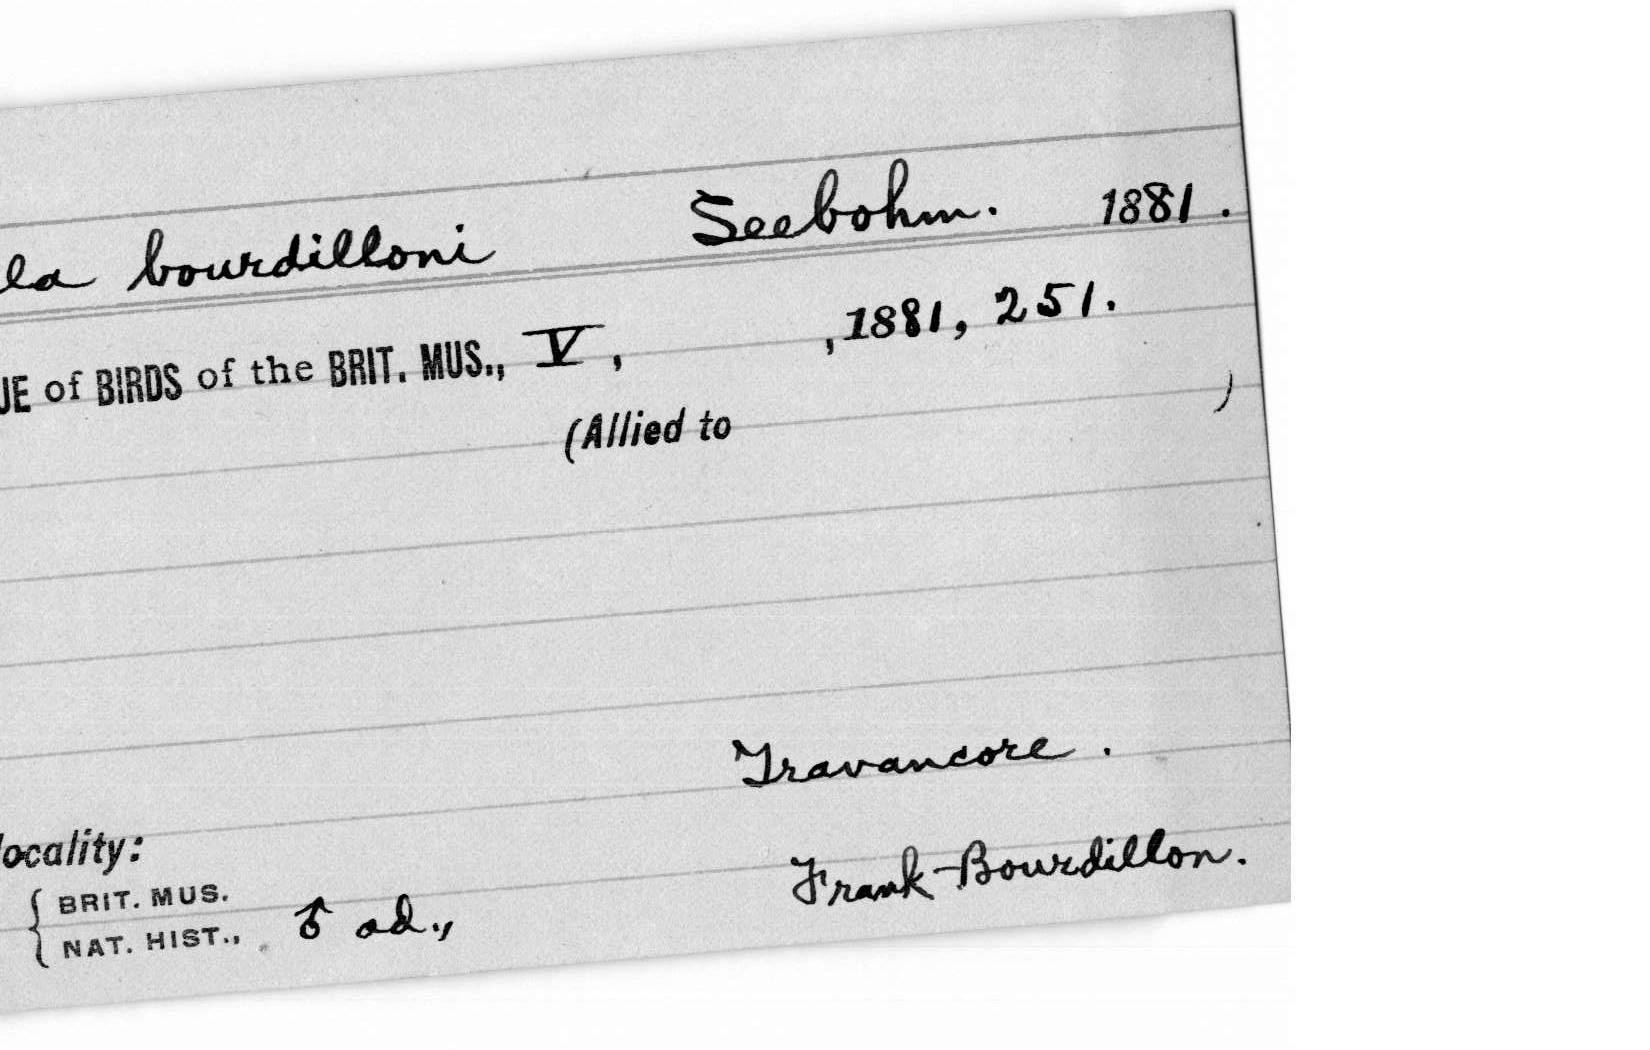 la bourdilloni Seebohm. 1881.
UE of BIRDS of the BRIT. MUS., V, , 1881, 251.
(Allied to )
Travancore.
locality:
Frank Bourdillon.
BRIT. MUS.
NAT. HIST., ♂ ad.,